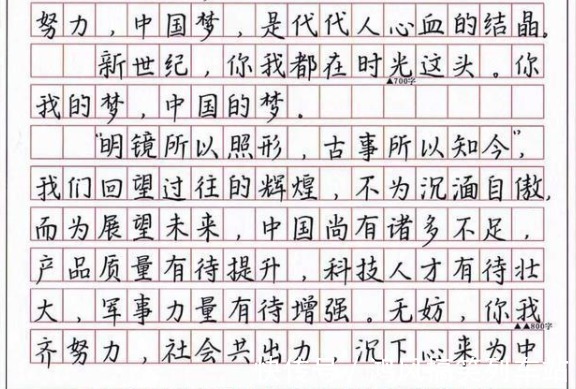 努力，中国梦，是代代人心血的结晶。
新世纪，你我都在时光这头。你
▲700字
我的梦，中国的梦。
“明镜所以照形，古事所以知今”，
我们回望过往的辉煌，不为沉湎自傲，
而为展望未来，中国尚有诸多不足，
产品质量有待提升，科技人才有待壮
大，军事力量有待增强。无妨，你我
▲▲800字
齐努力，社会共出力，沉下心来为中